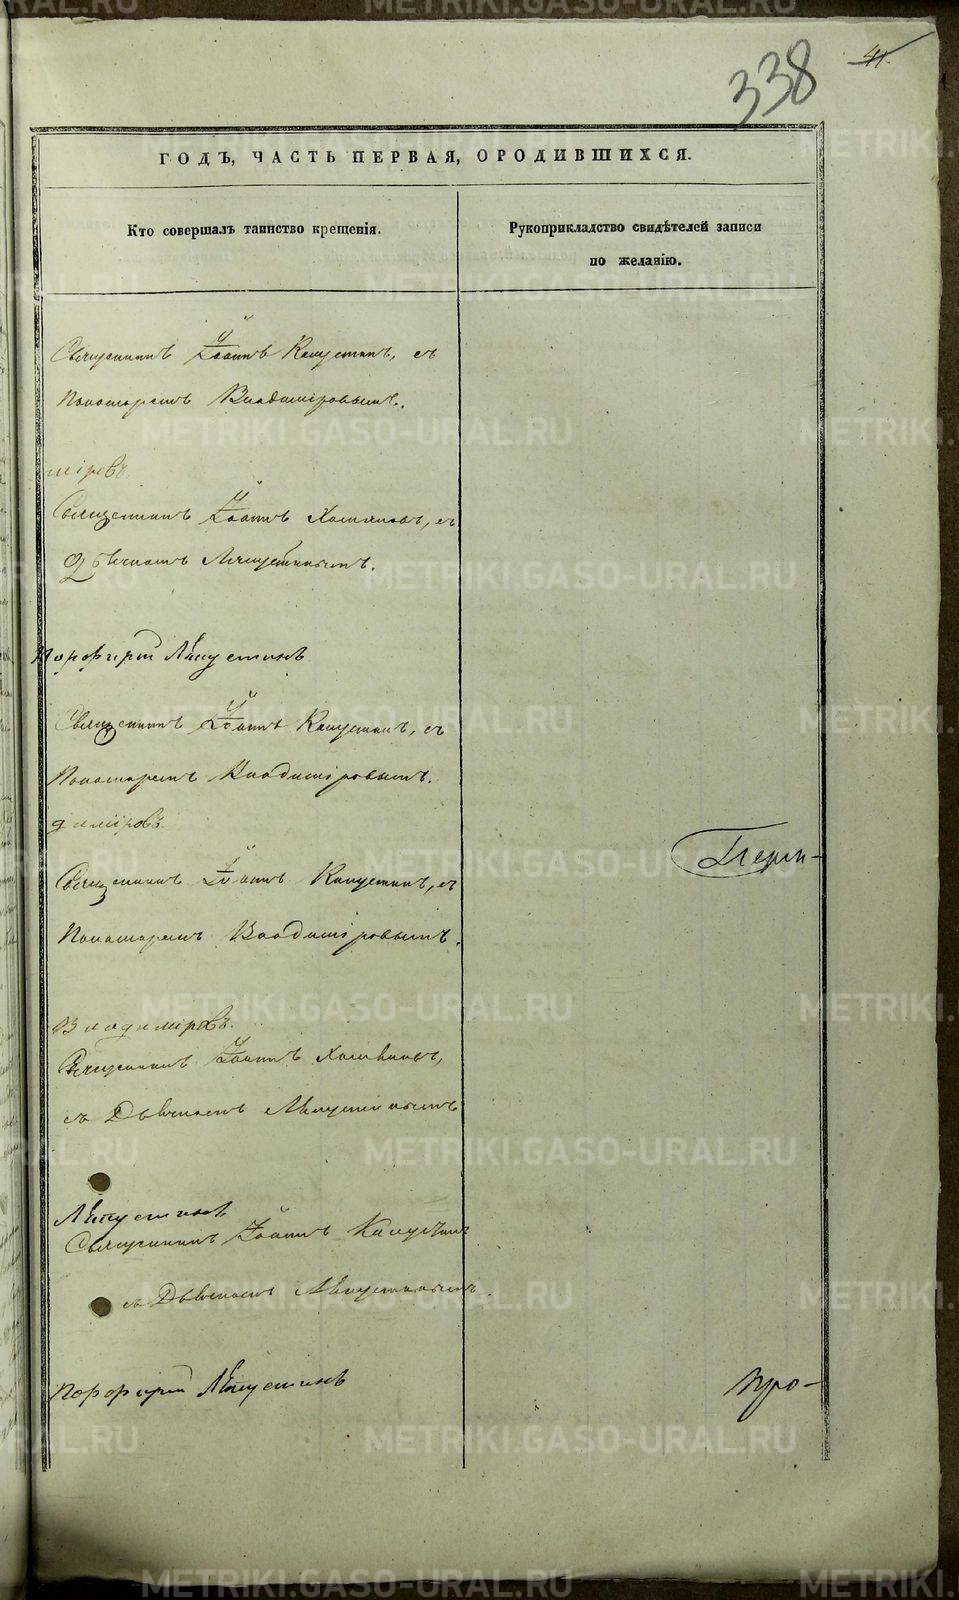 338
41
ГОДЪ, ЧАСТЬ ПЕРВАЯ, ОРОДИВШИХСЯ.
Кто совершалъ таинство крещенія.
Рукоприкладство свидѣтелей записи
по желанію.
Священникъ Іоаннъ Капустинъ, съ
Пономаремъ Владиміровымъ.
міровъ
Священникъ Іоаннъ Хомяковъ, съ
Дьячкомъ
Порфирій
Священникъ Іоаннъ Капустинъ, съ
Пономаремъ Владиміровымъ.
диміровъ
Священникъ Іоаннъ Капустинъ, съ
Пономаремъ Владиміровымъ.
Перм-
Владиміровъ.
Священникъ Іоаннъ
съ Дьячкомъ
Священникъ Іоаннъ Капустинъ
съ Дьячкомъ
Порфирій
Про-
METRIKI.GASO-URAL.RU